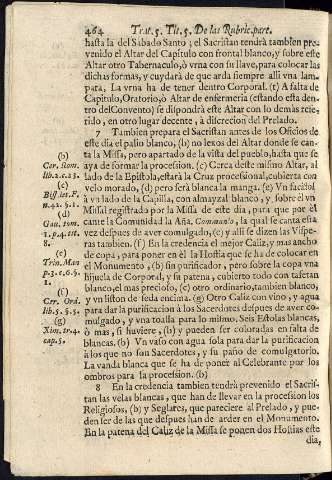 464 Trat. 5. Tit. 5. De las Rubric. part.
hasta la del Sabado Santo; el Sacristan tendrà tambien pre-
venido el Altar del Capitulo con frontal blanco, y sobre este
Altar otro Tabernaculo, ò vrna con su llave, para colocar las
dichas formas, y cuydarà de que arda siempre alli vna lam-
para. La vrna ha de tener dentro Corporal. (t) A falta de
Capitulo, Oratorio, ò Altar de enfermeria (estando esta den-
tro del Convento) se dispondrà este Altar con lo demàs refe-
rido, en otro lugar decente, à discrecion del Prelado.
7 Tambien prepara el Sacristan antes de los Oficios de
este dia el palio blanco, (b) no lexos del Altar donde se can-
ta la Missa, pero apartado de la vista del pueblo, hasta que se
aya de formar la procession. (c) Cerca deste mismo Altar, al
lado de la Epistola, estarà la Cruz processional, cubierta con
velo morado, (d) pero serà blanca la manga. (e) Vn facistol
à vn lado de la Capilla, con almayzal blanco, y sobre el vn
Missal registrado por la Missa de este dia, para que por èl
cante la Comunidad la Aña. Comunio, la qual se canta esta
vez despues de aver comulgado, (e) y alli se dizen las Vispe-
ras tambien. (f) En la credencia el mejor Caliz, y mas ancho
de copa, para poner en èl la Hostia que se ha de colocar en
el Monumento, (b) sin purificador, pero sobre la copa vna
hijuela de Corporal, y su patena, cubierto todo con tafetan
blanco, el mas precioso, (c) otro ordinario, tambien blanco,
y vn liston de seda encima. (g) Otro Caliz con vino, y agua
para dar la purificacion à los Sacerdotes despues de aver co-
mulgado, y vna toalla para lo mismo. Seis Estolas blancas,
ò mas, si huviere, (b) y pueden ser coloradas en falta de
blancas. (b) Vn vaso con agua sola para dar la purificacion
à los que no son Sacerdotes, y su paño de comulgatorio.
La vanda blanca que se ha de poner al Celebrante por los
ombros para la procession. (b)
8 En la credencia tambien tendrà prevenido el Sacris-
tan las velas blancas, que han de llevar en la procession los
Religiosos, (b) y Seglares, que pareciere al Prelado, y pue-
den ser de las que despues han de arder en el Monumento.
En la patena del Caliz de la Missa se ponen dos Hostias este
dia,
(b)
Cer. Rom.
lib. 2. c. 23.
(c)
(d)
8.
(e)
(f)
Cer. Ord.
lib. 5. §. 5.
(g)
cap. 5.